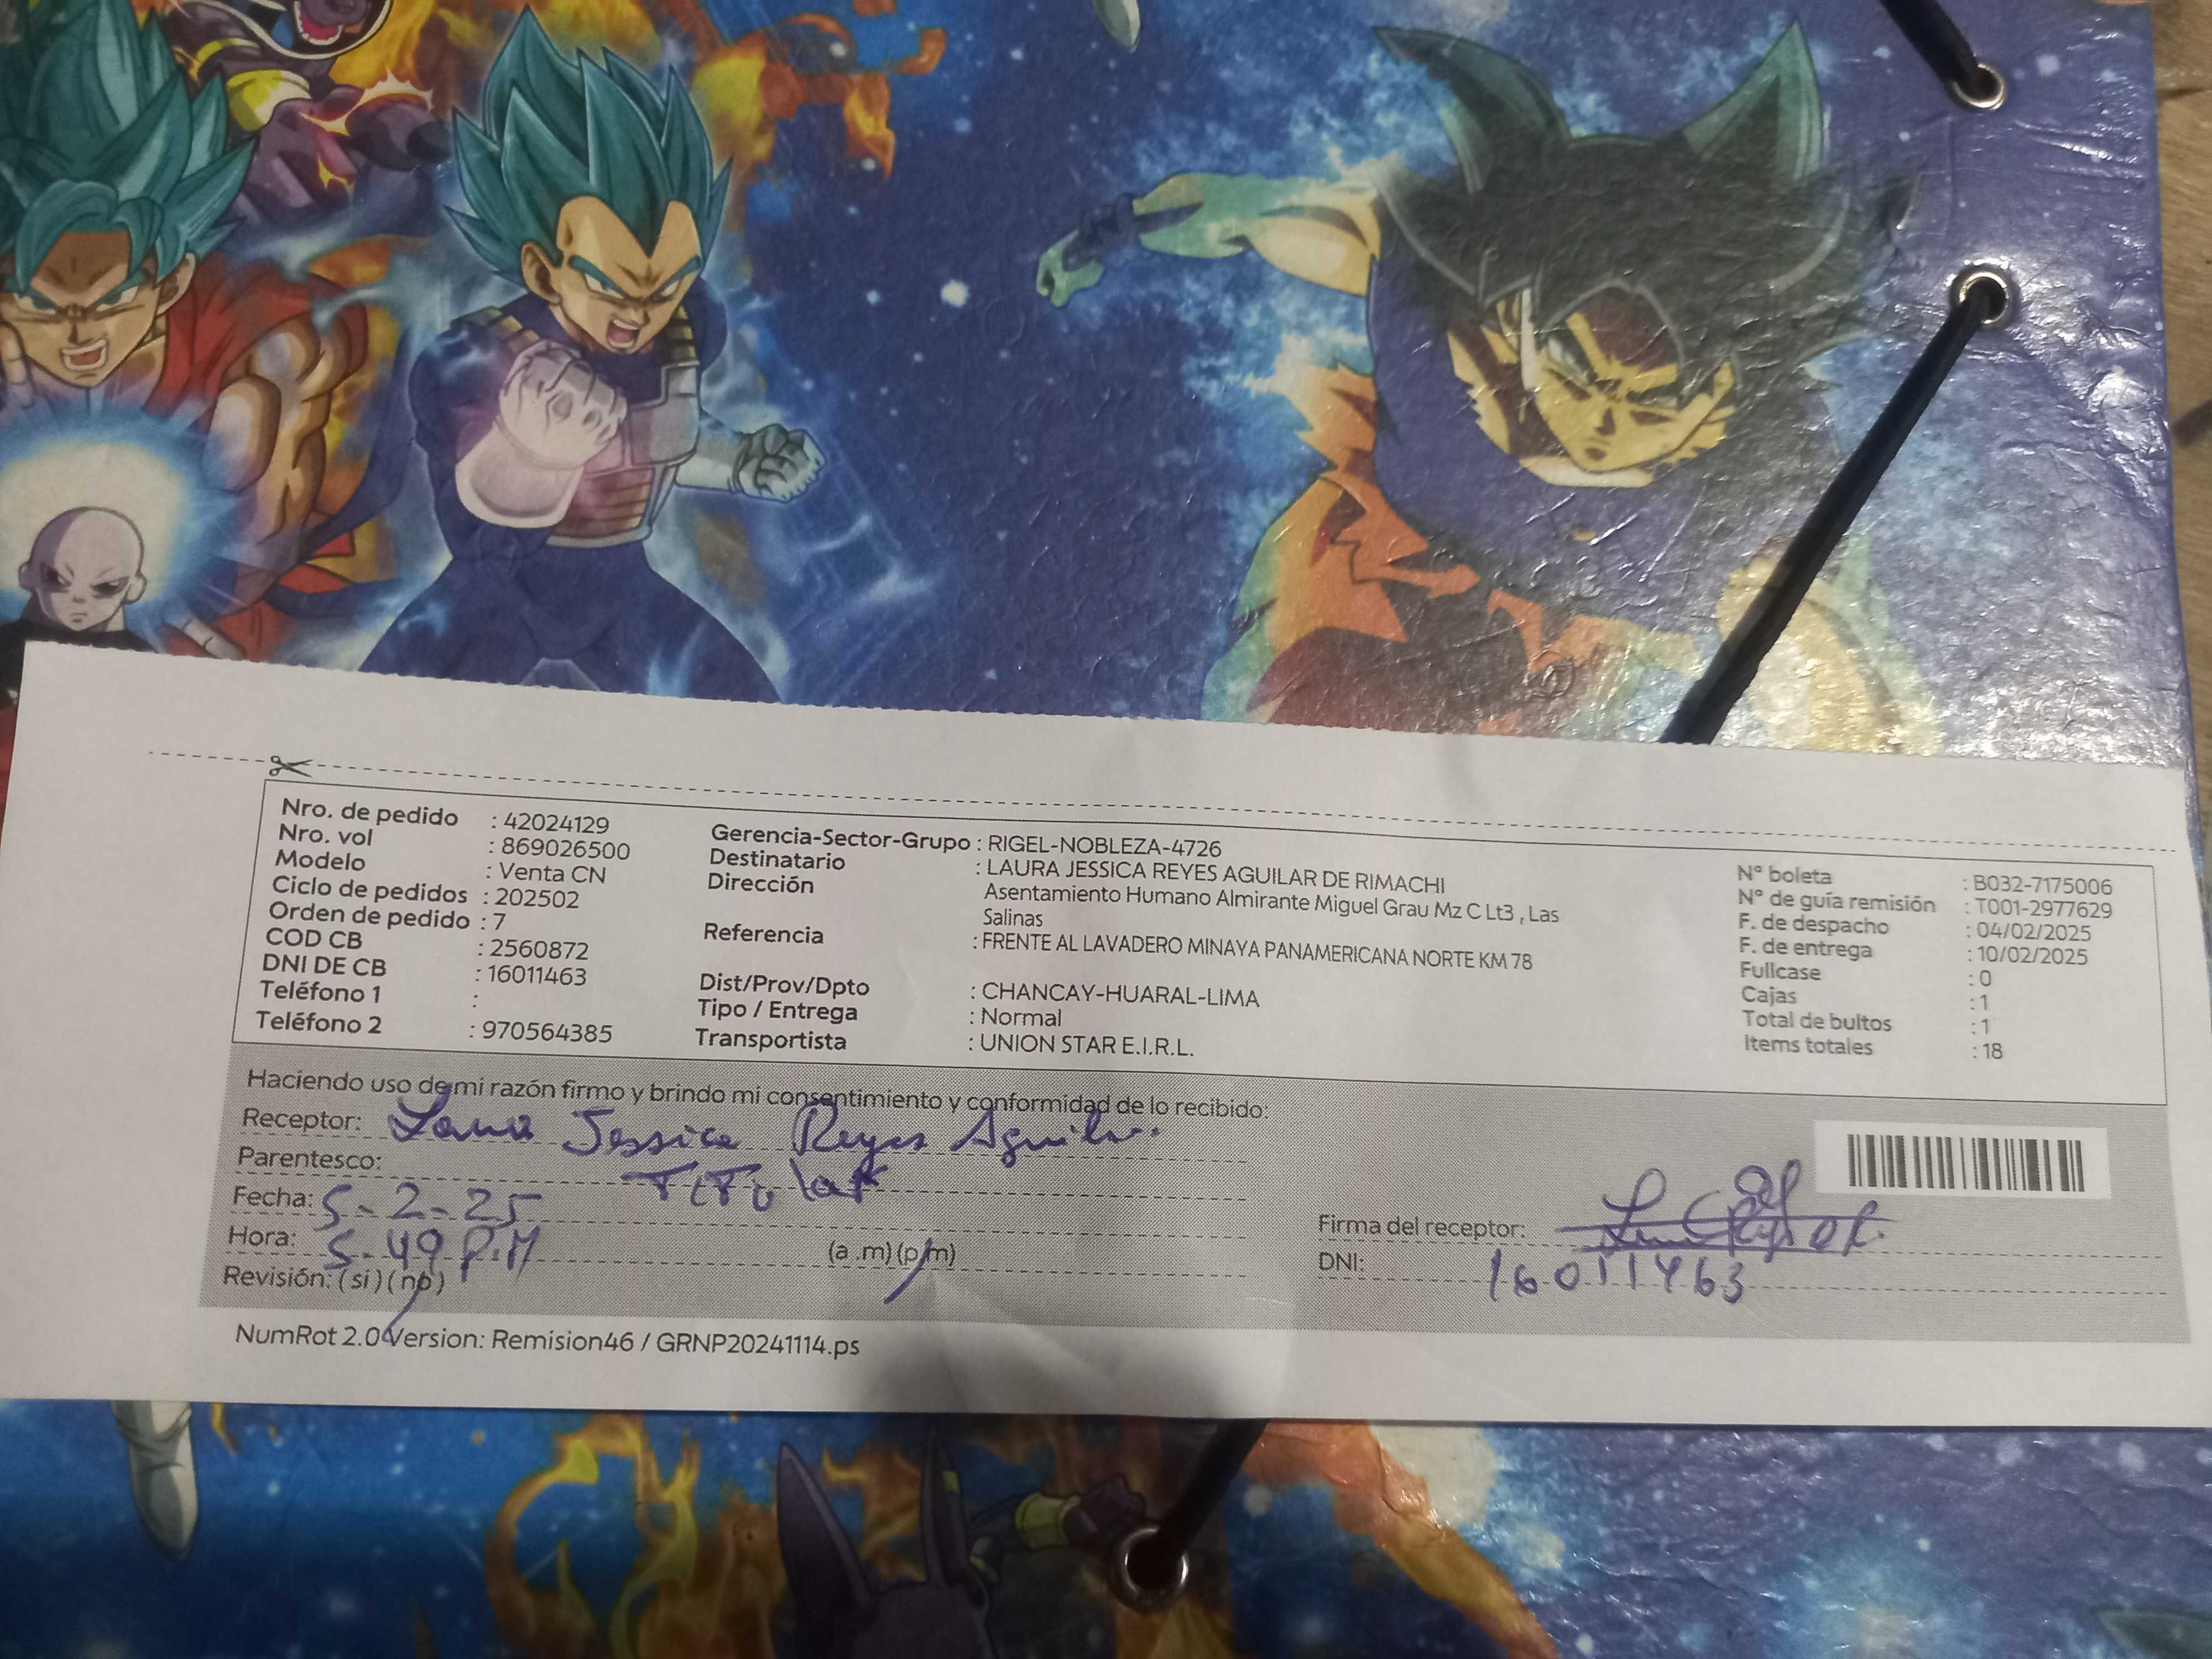 Nro. de pedido : 42024129
Nro. vol : 869026500
Modelo : Venta CN
Ciclo de pedidos : 202502
Orden de pedido : 7
COD CB : 2560872
DNI DE CB : 16011463
Teléfono 1 :
Teléfono 2 : 970564385
Gerencia-Sector-Grupo : RIGEL-NOBLEZA-4726
Destinatario : LAURA JESSICA REYES AGUILAR DE RIMACHI
Dirección Asentamiento Humano Almirante Miguel Grau Mz C Lt3 , Las
Salinas
Referencia : FRENTE AL LAVADERO MINAYA PANAMERICANA NORTE KM 78
Dist/Prov/Dpto : CHANCAY-HUARAL-LIMA
Tipo / Entrega : Normal
Transportista : UNION STAR E.I.R.L.
N° boleta : B032-7175006
N° de guía remisión : T001-2977629
F. de despacho : 04/02/2025
F. de entrega : 10/02/2025
Fullcase : 0
Cajas : 1
Total de bultos : 1
Items totales : 18
Haciendo uso de mi razón firmo y brindo mi consentimiento y conformidad de lo recibido:
Receptor: Laura Jessica Reyes Aguilar
Parentesco: Titular
Fecha: 5-2-25
Hora: 5-49 P.M (a .m) (p.m)
Revisión: (si) (no)
Firma del receptor:
DNI: 16011463
NumRot 2.0 Version: Remision46 / GRNP20241114.ps